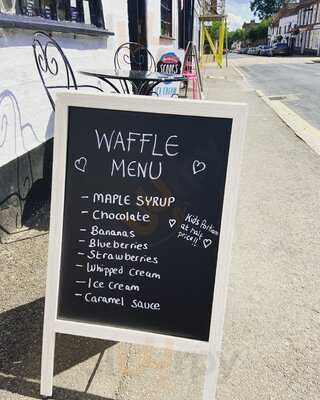 WAFFLE
MENU
- MAPLE SYRUP
- Chocolate
- Bananas
- Blueberries
- Strawberries
- Whipped Cream
- Ice Cream
- Caramel Sauce
Kids Portion
at half
price!!
SCOOPS